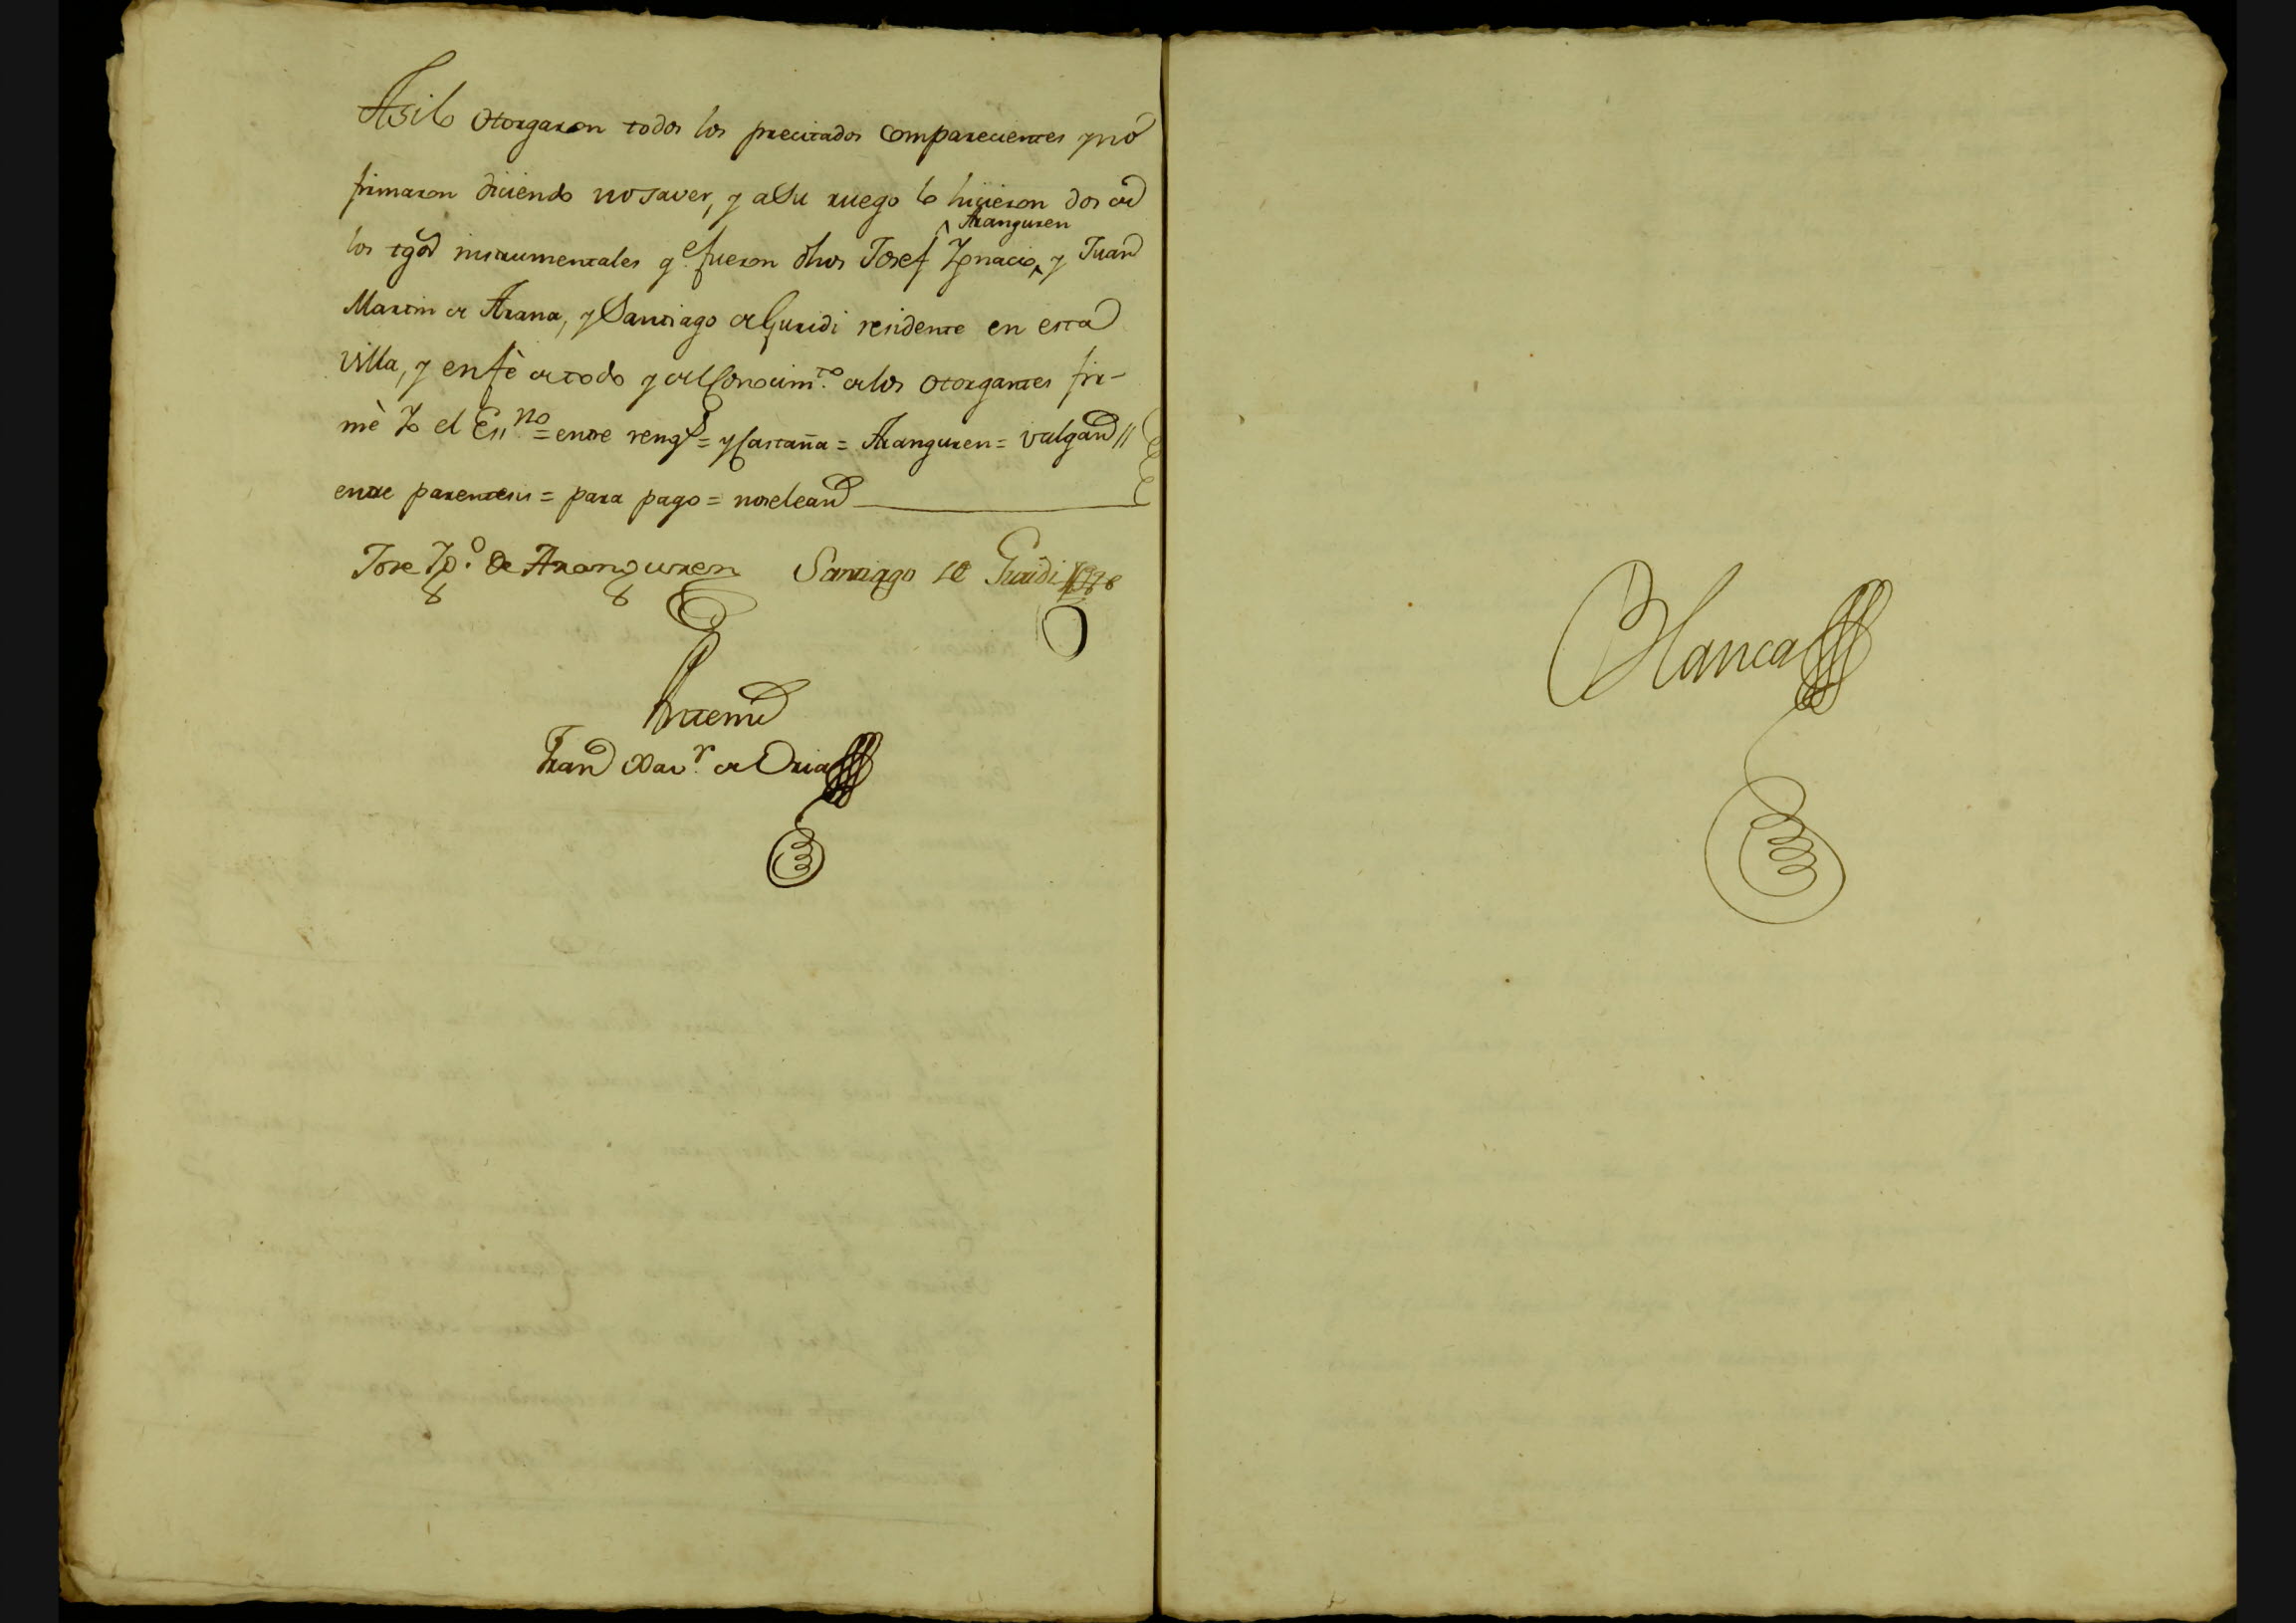 Asilo otorgaron todos los precitados comparecientes y no
firmaron diciendo no saver, y a su ruego lo hicieron dos de
los tgos instrumentales qe. fueron dhos Josef Ygnacio ^Aranguren^ y Juan
Martin de Arana, y Santiago de Guridi residente en esta
villa, y en fè de todo y del Conocimto. de los otorgantes fir-
mè Yo el Essno = entre rengs = y Castaña = Aranguren = valgan //
entre parentesis = para pago = no se lean
Jose Ygo. de Aranguren Santiago de Guridi
Antemi
Fran Xavr. de Oria
Blanca